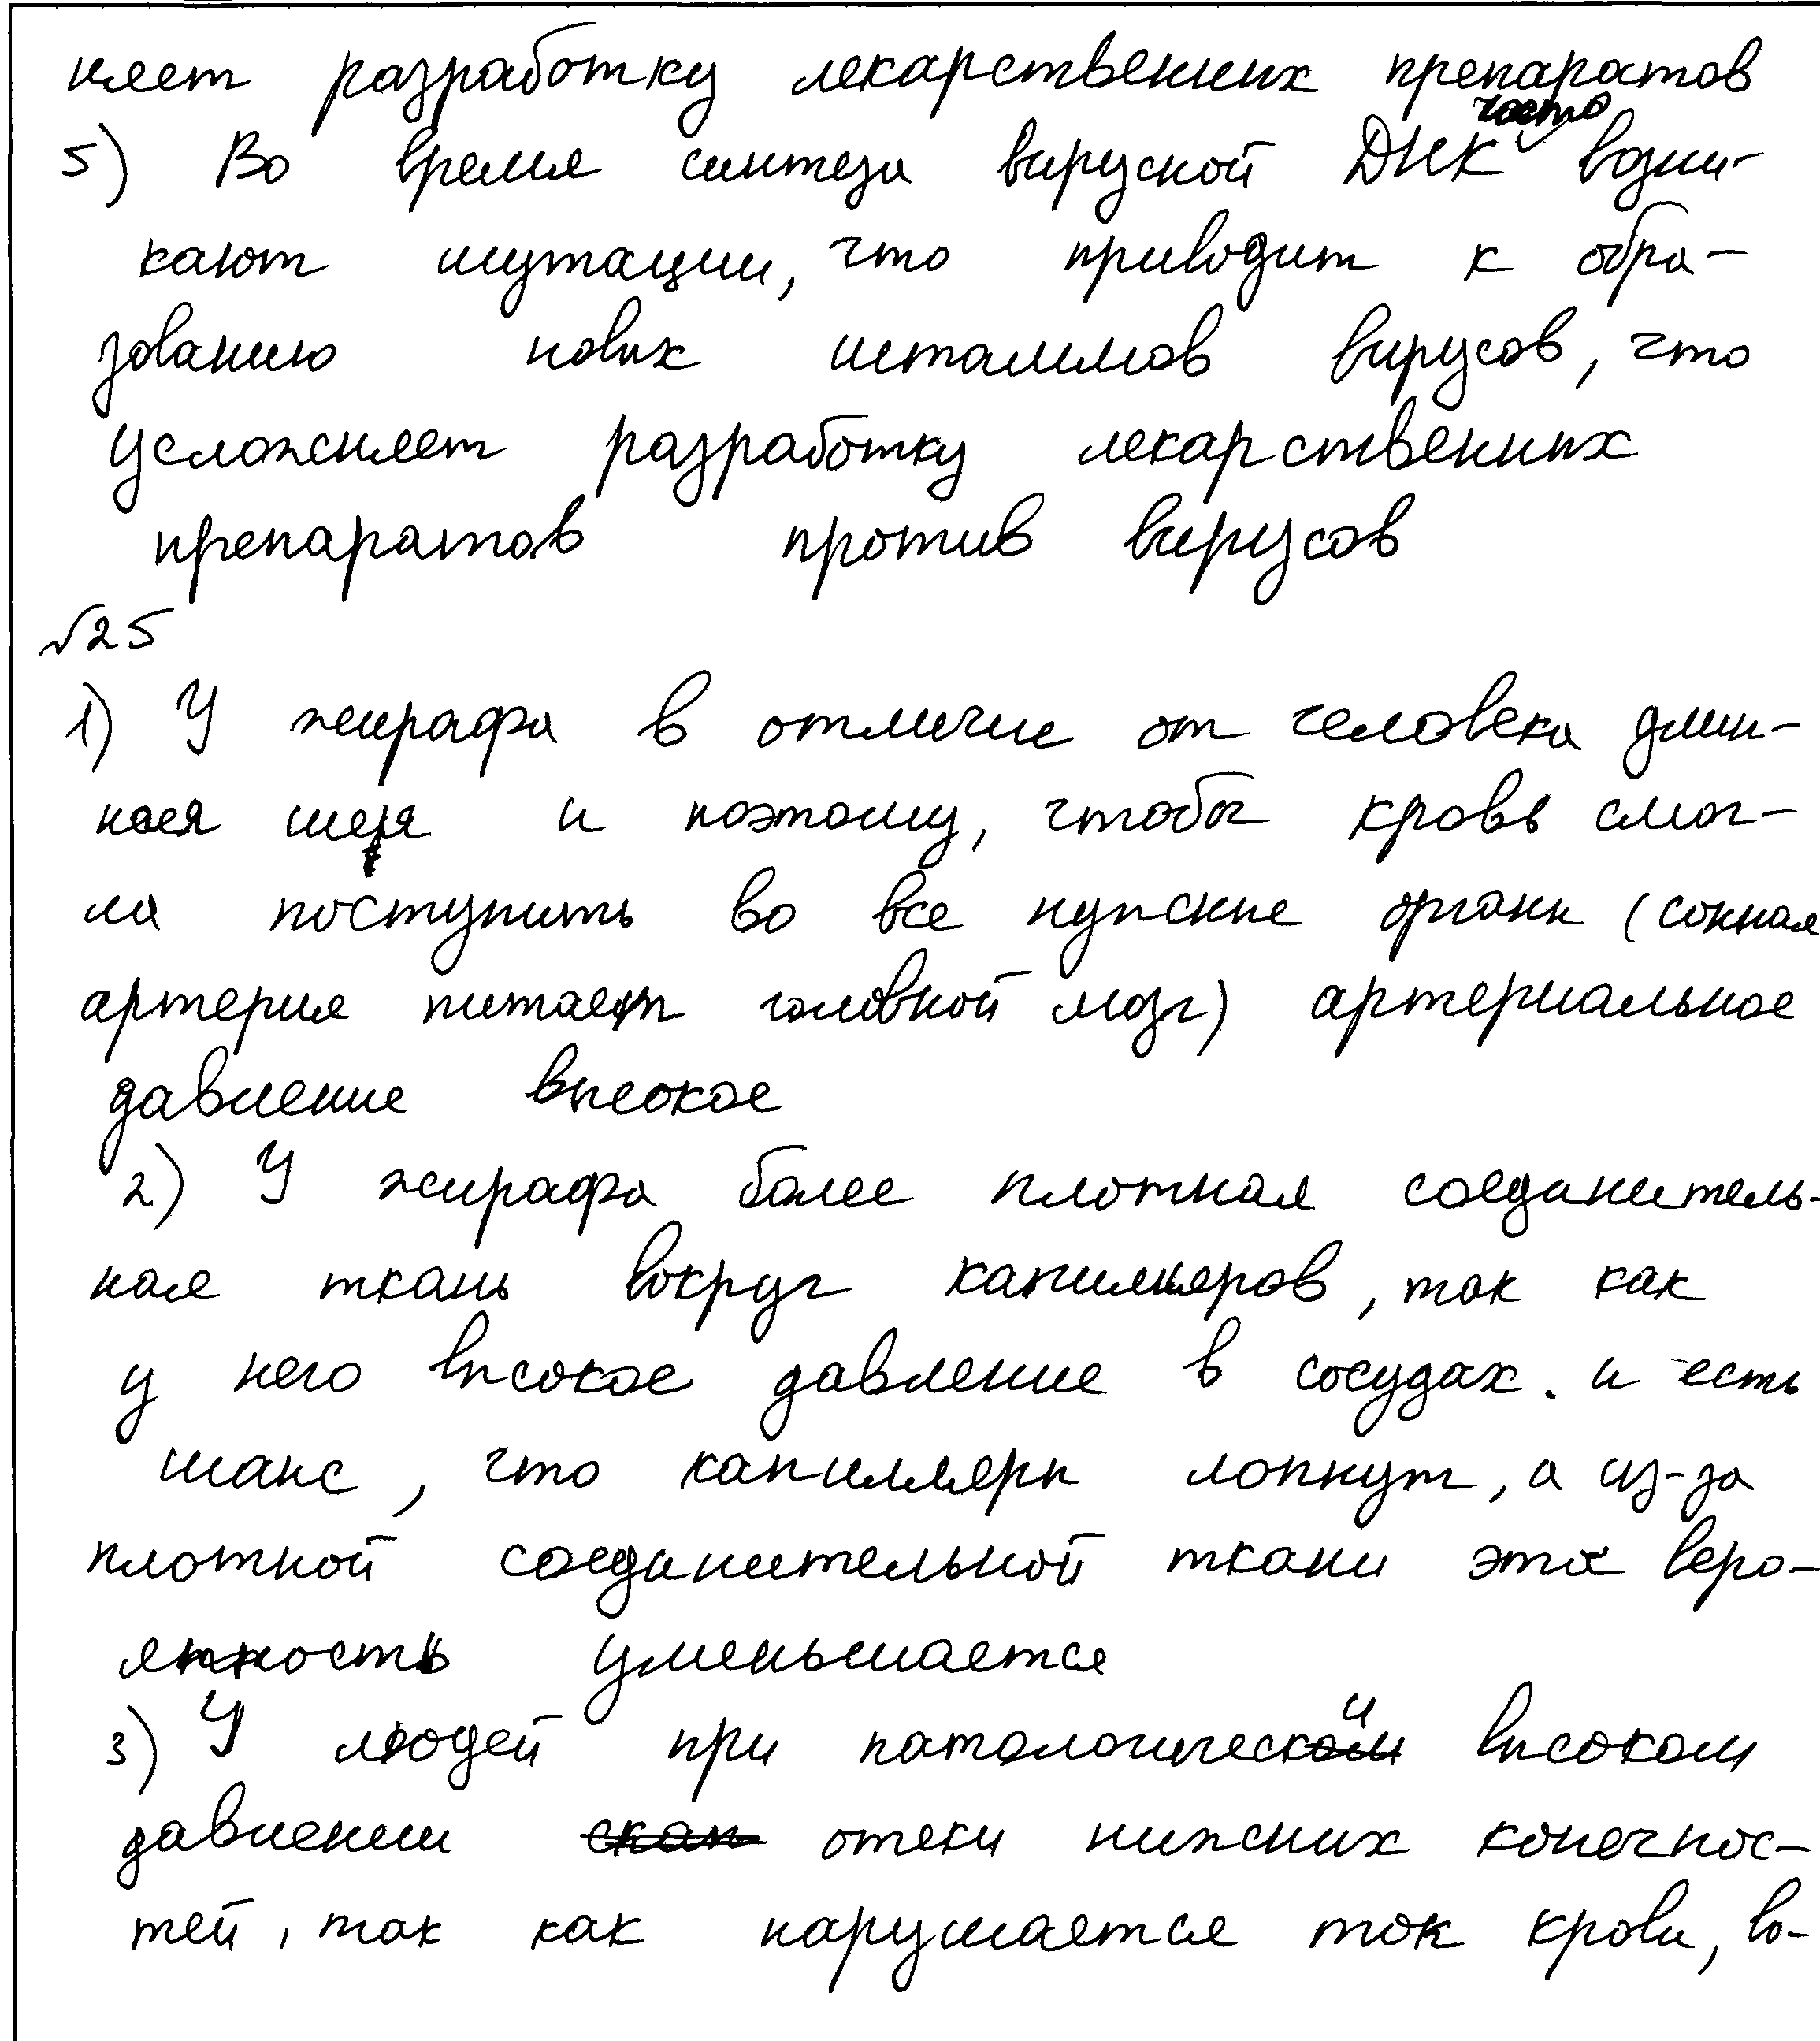 няет разработку лекарственных препаратов
5) Во время синтеза вирусной ДНК часто возни-
кают мутации, что приводит к обра-
зованию новых штаммов вирусов, что
усложняет разработку лекарственных
препаратов против вирусов
√25
1) У жирафа в отличие от человека длин-
ная шея и поэтому, чтобы кровь смог-
ла поступить во все нужные органы (сонная
артерия питает головной мозг) артериальное
давление высокое
2) У жирафа более плотная соединитель-
ная ткань вокруг капилляров, так как
у него высокое давление в сосудах. и есть
шанс, что капилляры лопнут, а из-за
плотной соединительной ткани эта веро-
ятность уменьшается
3) У людей при патологически высоком
давлении отеки нижних конечнос-
тей, так как нарушается ток крови, во-